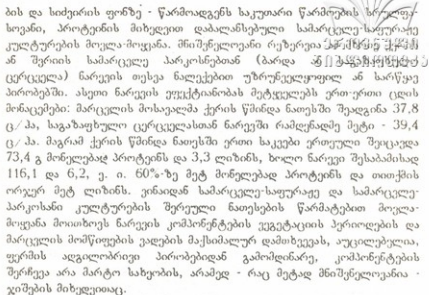 ბის და სიძვირის ფონზე - წარმოადგენს საკუთარი წარმოების სრულფა-
სოვანი, პროტეინის მიხედვით დაბალანსებული სამარცვლე-საფურაჟე
კულტურების მოვლა-მოყვანა. მნიშვნელოვანი რეზერვია
ან შვრიის სამარცვლე პარკოსნებთან (ბარდა
ცერცველა) ნარევის თესვა ნალექებით უზრუნველყოფილ ან სარწყავ
პირობებში. ასეთი ნარევის ეფექტიანობას მეტყველებს ერთ-ერთი ცდის
მონაცემები: მარცვლის მოსავალმა ქერის წმინდა ნათესში შეადგინა 37,8
ც/ჰა, საგაზაფხულო ცერცველასთან ნარევში რამდენადმე მეტი - 39,4
ც/ჰა. მაგრამ ქერის წმინდა ნათესში ერთი საკვები ერთეული შეიცავდა
73,4 გ მონელებად პროტეინს და 3,3 ლიზინს, ხოლო ნარევი შესაბამისად
116,1 და 6,2, ე. ი. 60%-ზე მეტ მონელებად პროტეინს და თითქმის
ორჯერ მეტ ლიზინს. ვინაიდან სამარცვლე-საფურაჟე და სამარცვლე-
პარკოსანი კულტურების შერეული ნათესების წარმატებით მოვლა-
მოყვანა მოითხოვს ნარევის კომპონენტების ვეგეტაციის პერიოდების და
მარცვლის მომწიფების ვადების მაქსიმალურ დამთხვევას, აუცილებელია,
ფერმის ადგილობრივი პირობებიდან გამომდინარე, კომპონენტების
შერჩევა არა მარტო სახეობის, არამედ - რაც მეტად მნიშვნელოვანია -
ჯიშების მიხედვითაც.